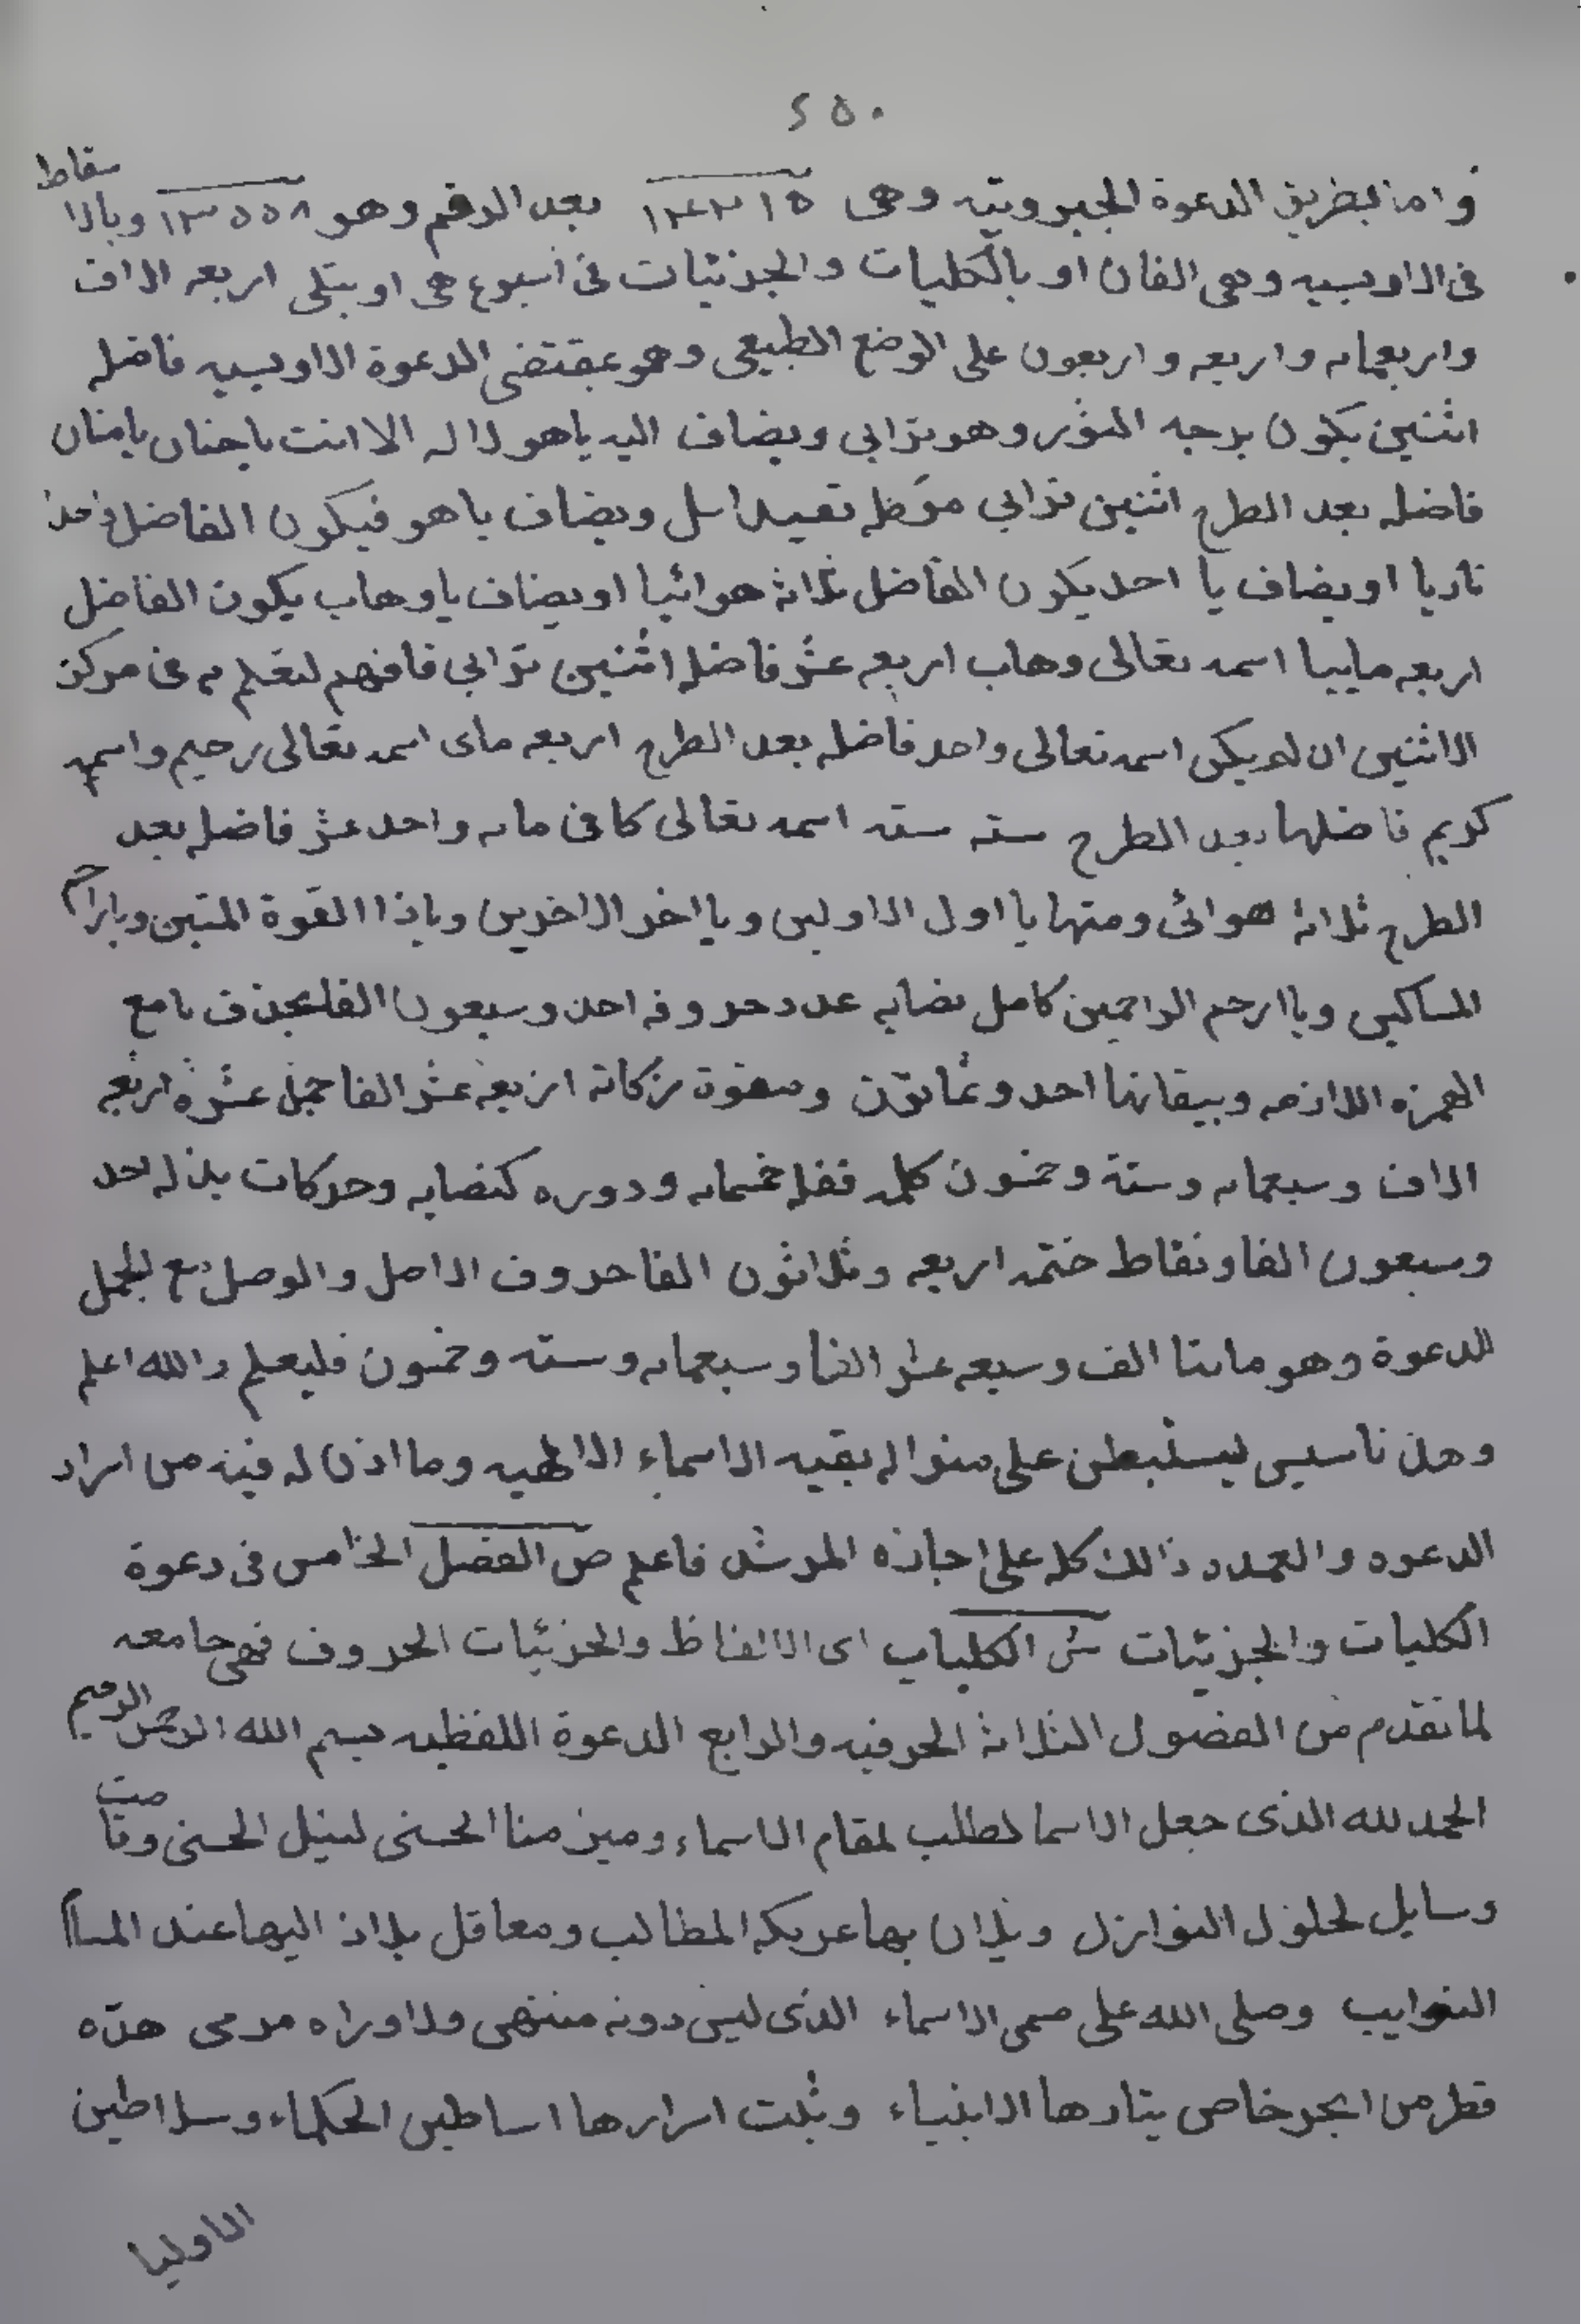 ٢٥٠
واما بطريق الدعوة الجبروتيه وهى ١٢٢١٥ بعد الرقم وهو ١٣٥٥٨ وبالا سقاط
فى الاويسيه وهى الفان او بالكليات والجزئيات فى اسبوع هى او يتلى اربعه الاف
واربعمايه واربعه واربعون على الوضع الطبيعى وهو بمقتضى الدعوة الاويسيه فاضله
اثنين يكون بدرجه الثور وهو ترابي ويضاف اليه ياهو لا اله الا انت ياحنان يامنان
فاضله بعد الطرح اثنين ترابي ويضاف ياهو فيكون الفاضل واحدا
ناريا او يضاف يا احد يكون الفاضل ثلاثه هوائيا او يضاف ياوهاب يكون الفاضل
اربعه ماييا اسمه تعالى وهاب اربعه عشر فاضله اثنين ترابي فافهم لتعلم فى مركز
الاثنين ان لم يكن اسمه تعالى واحد فاضله بعد الطرح اربعه ماى اسمه تعالى رحيم واسمه
كريم فاضلها بعد الطرح سته سته اسمه تعالى كافى مايه واحد عشر فاضله بعد
الطرح ثلاثة هوائى ومنها يا اول الاولين ويا اخر الاخرين وياذا القوة المتين ويا راحم
المساكين ويا ارحم الراحمين كامل نصابه عدد حروفه احد وسبعون الفا بحذف يا مع
الهمزه اللازمه وبيقائها احد وثمانون وصفوة زكاته اربعة عشر الفا خمسة عشره اربعه
الاف وسبعمايه وستة وخمسون كلمه قفله خمسمايه ودوره كنصابه وحركات بذله احد
وسبعون الفا ونقاط ختمه اربعه وثلاثون الفا حروف الاصل والوصل مع الجمل
للدعوة وهو مايتا الف وسبعه عشر الفا وسبعمايه وسته وخمسون فليعلم والله اعلم
وهذا تاسيس ليستنبطن على منواله بقيه الاسماء الالهيه وما اذن له فيه من اسرار
الدعوه والعدد ذالك كله على اجازه المرشد فاعلم ص الفصل الخامس فى دعوة
الكليات والجزئيات ش الكليات اى الالفاظ والجزئيات الحروف فهى جامعه
لما تقدم من الفصول الثلاثة الحرفيه والرابع الدعوة اللفظيه بسم الله الرحمن الرحيم
الحمد لله الذى جعل الاسما لطلب لمقام الاسماء وميز منا الحسنى لنيل الحسنى وقامت
وسايل لحلول النوازل ويلان بها عريكه المطالب ومعاقل يلاذ اليها عند
النوايب وصلى الله على الاسماء الذى ليس دونه منتهى ولا وراه مرمى هذه
قطر من ابحر خاص تيارها الانبياء وثبت اسرارها اساطين الحكماء وسلاطين
الاوليا